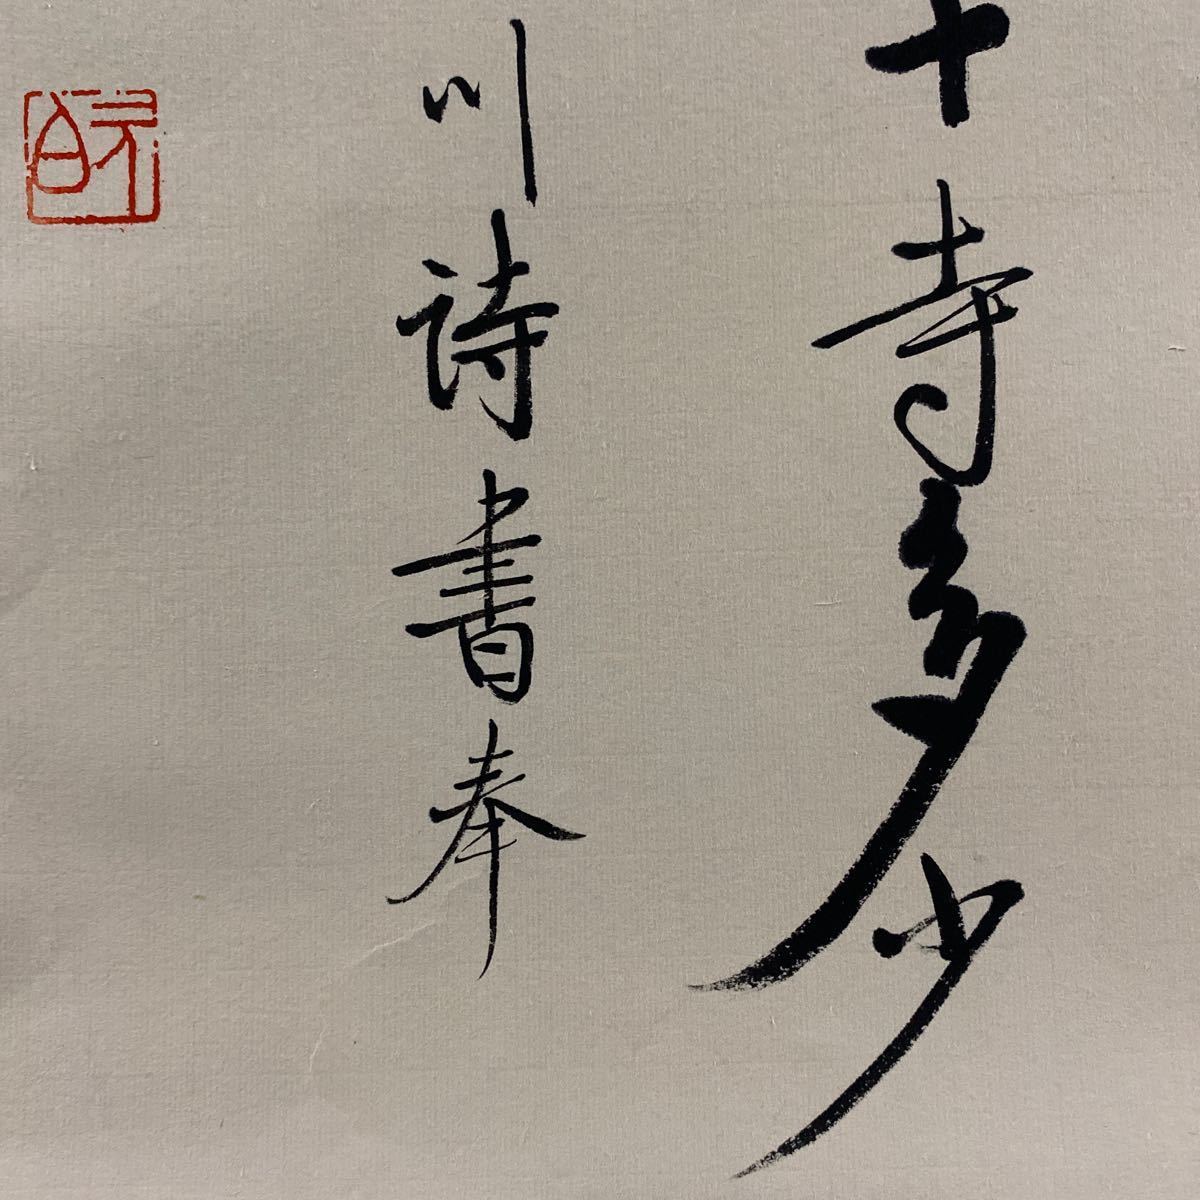 十寺多少
川詩書奉